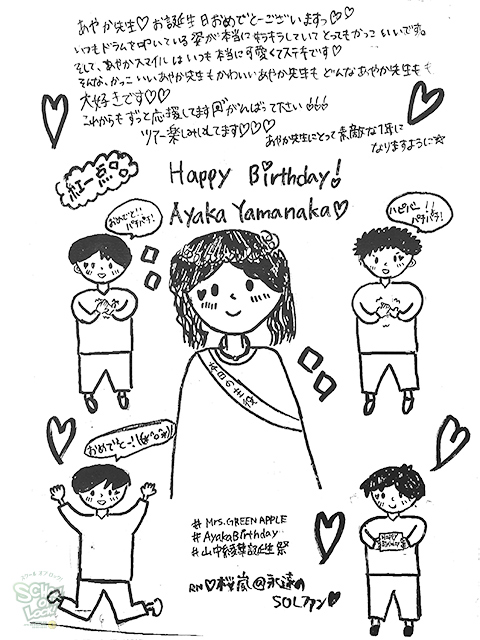 あやか先生♡お誕生日おめでとーございますっ♡♡
いつもドラムを叩いている姿が本当にキラキラしていてとってもかっこいいです。
そして、あやかスマイルはいつも本当に可愛くてステキです♡
そんな、かっこいいあやか先生もかわいいあやか先生もどんなあやか先生も
大好きです♡♡
これからもずっと応援してます がんばって下さい
ツアー楽しみにしてます♡♡♡
あやか先生にとって素敵な1年に
なりますように☆
紅一点
Happy Birthday!
Ayaka Yamanaka♡
おめでと!!
パチパチ!
ハピバー!!
パチパチ!
本日の主役
おめでとー!
HAPPY
BIRTHDAY
# Mrs. GREEN APPLE
# AyakaBirthday
# 山中綾華誕生祭
RN♡桜嵐@永遠の
SOLファン♡